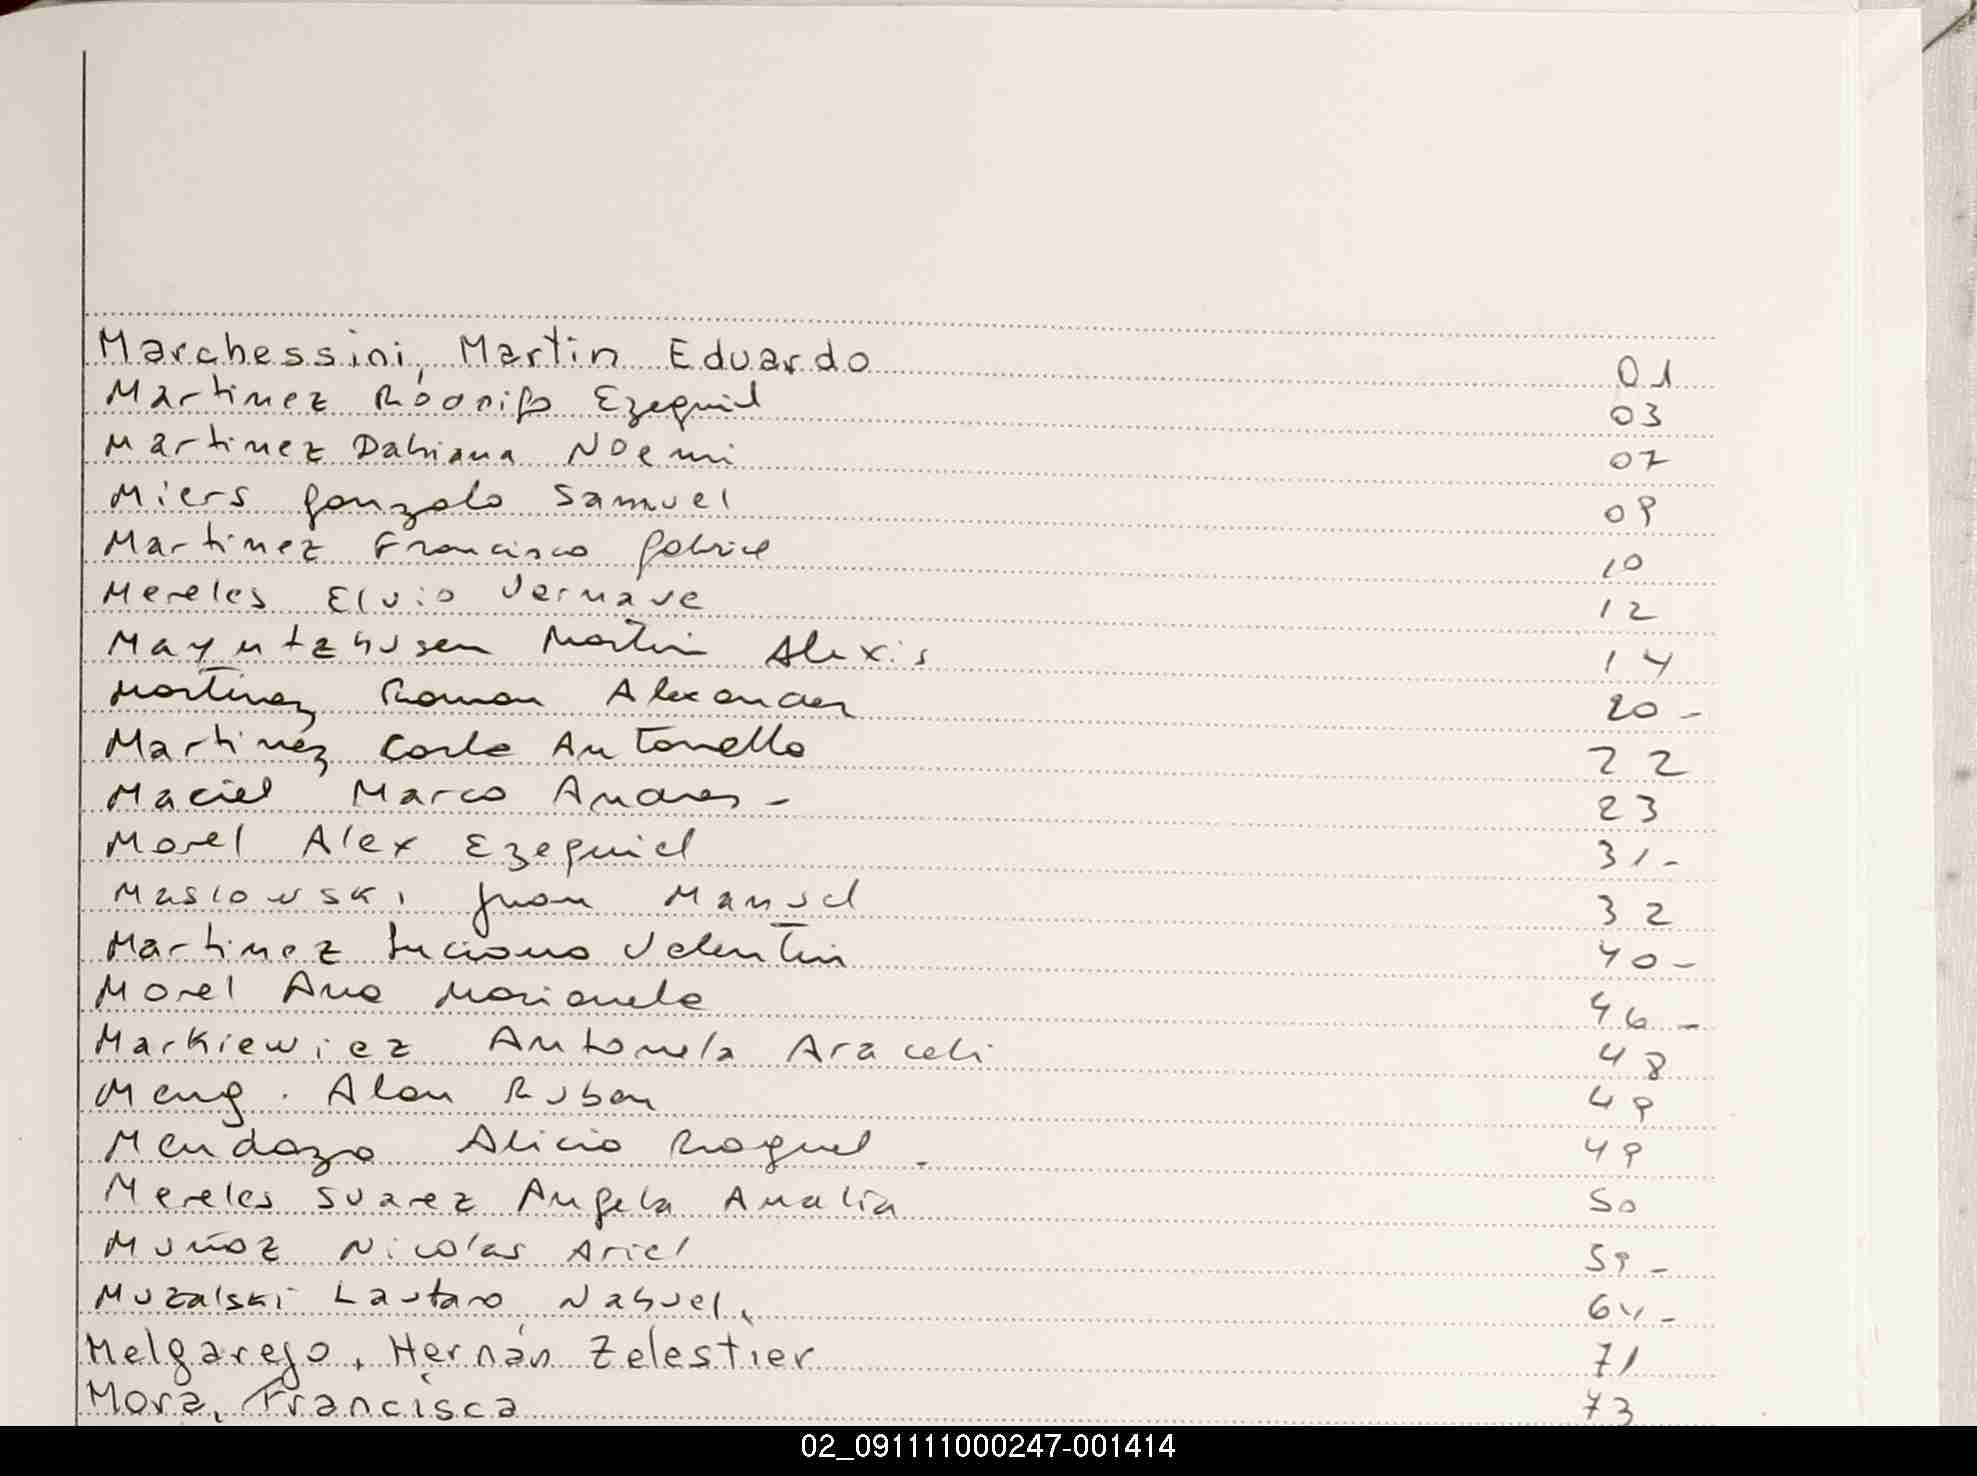 Marchessini, Martin Eduardo 01
Martinez Rodrigo Ezequiel 03
Martinez Dahiana Noemi 07
Miers Gonzalo Samuel 09
Martinez Francisco Gabriel 10
Mereles Elvio 12
Martin Alexis 14
Martinez Roman Alexander 20-
Martinez Carla Antonella 22
Maciel Marco Andres - 23
Morel Alex Ezequiel 31-
Maslowski Juan Manuel 32
Martinez Luciano Valentin 40-
Morel Ana Marianela 46-
Markiewicz Antonela Araceli 48
Meng. Alan Ruben 49
Mendoza Alicia Raquel - 49
Mereles Suarez Angela Analia 50
Muñoz Nicolas Ariel 59-
Muzalski Lautaro Nahuel. 64-
Melgarejo, Hernán Zelestier 71
Mora, Francisca 73
02_091111000247-001414